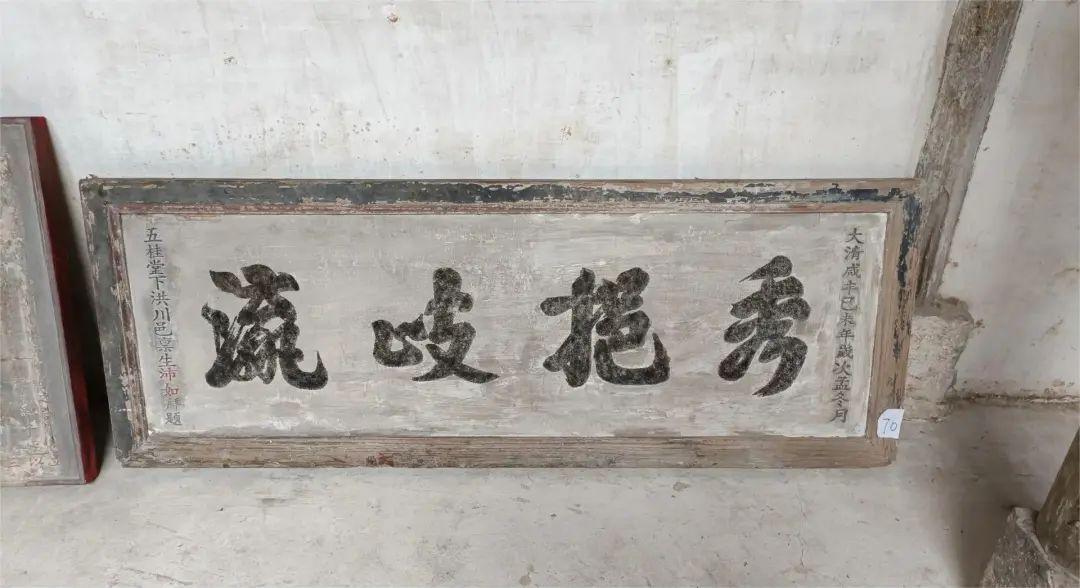 大清咸丰己未年歲次孟冬月
秀挹岐瀛
五桂堂下洪川邑生沛如題